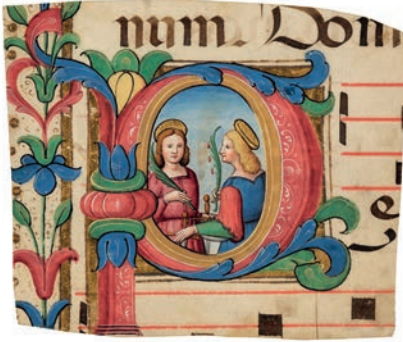 num. Dom
P
e